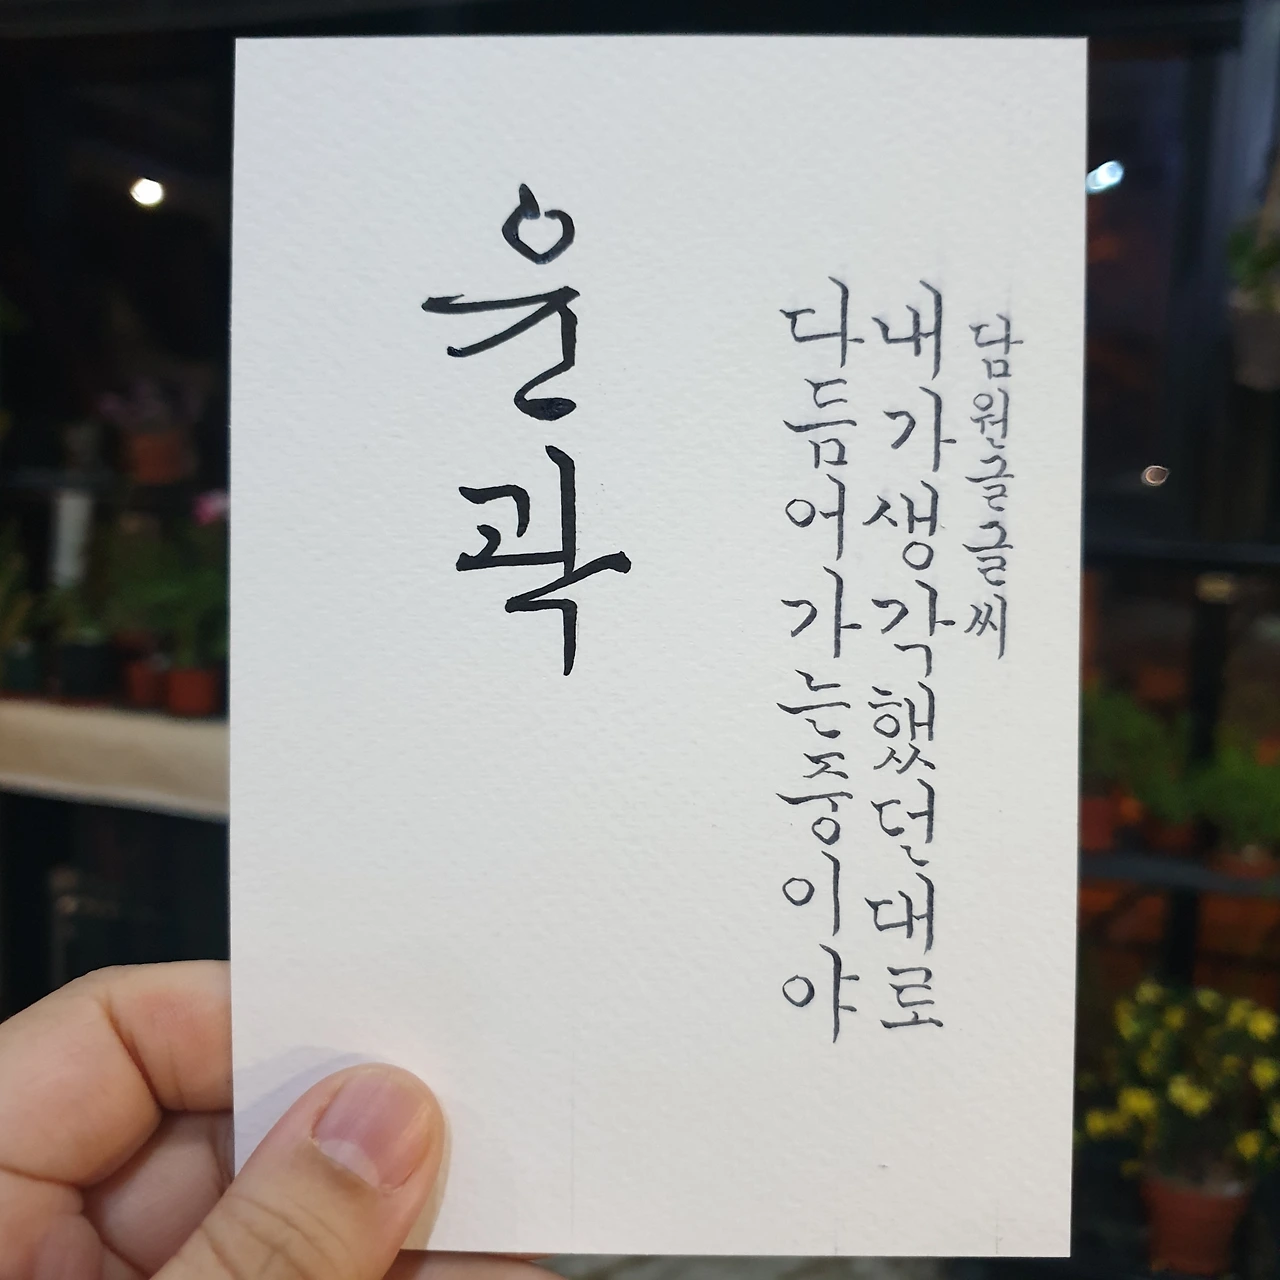 담원글글씨
내가생각했던대로
다듬어가는중이야
윤곽